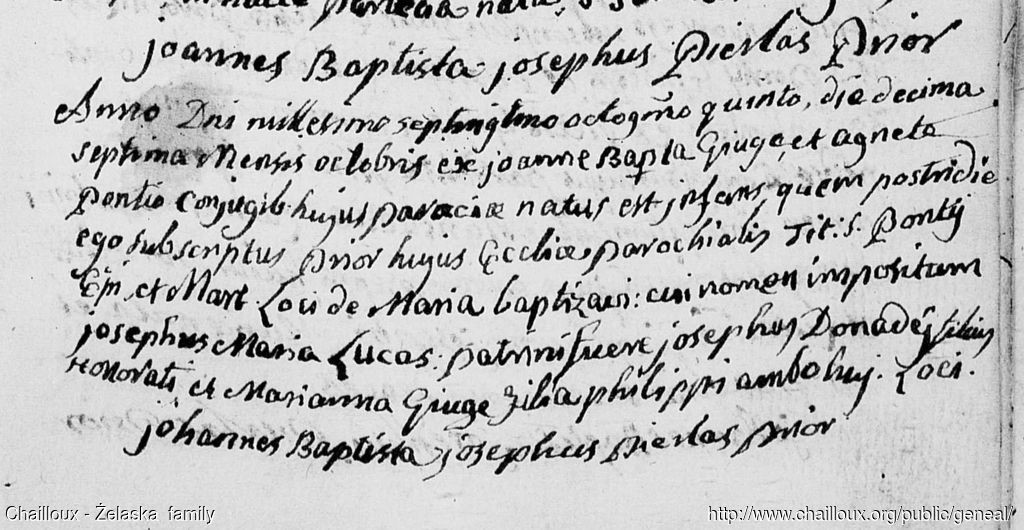 joannes Baptista josephus Pierlas Prior
Anno Dni millesimo septingtmo octogmo quinto, die decima
septima Mensis octobris ex joanne Bapta Giuge, et agneta
Pontio Conjugib. hujus Paraciæ natus est jnfans, quem postridie
ego subscriptus Prior hujus Ecclìæ parochialis Tit: S. Pontij
Epi, et Mart Loci de Maria baptizavi: cui nomen impositum
josephus Maria Lucas. patrini fuere josephus Donadej filius
Honorati et Marianna Giuge filia philippi ambo huj. Loci.
johannes Baptista josephus Pierlas Prior
Chailloux - Želaska family
http://www.chailloux.org/public/geneal/